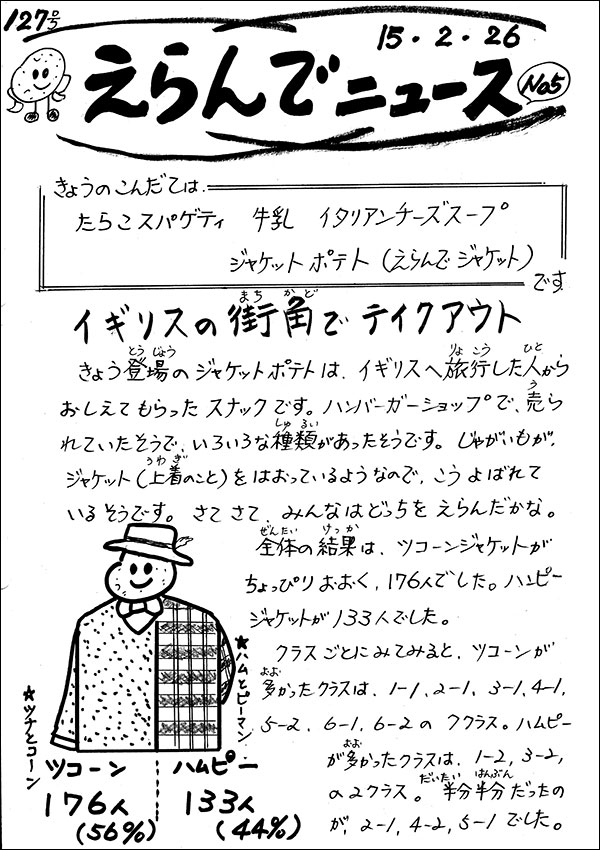 127号
15・2・26
えらんでニュース
No5
きょうのこんだては
たらこスパゲティ 牛乳 イタリアンチーズスープ
ジャケットポテト（えらんでジャケット）
です
イギリスの街角でテイクアウト
きょう登場のジャケットポテトは、イギリスへ旅行した人から
おしえてもらったスナックです。ハンバーガーショップで、売ら
れていたそうで、いろいろな種類があったそうです。じゃがいもが、
ジャケット（上着のこと）をはおっているようなので、こうよばれて
いるそうです。さてさて、みんなはどっちをえらんだかな。
全体の結果は、ツコーンジャケットが
ちょっぴりおおく、176人でした。ハムピー
ジャケットが133人でした。
クラスごとにみてみると、ツコーンが
多かったクラスは、1-1、2-1、3-1、4-1、
5-2、6-1、6-2の7クラス。ハムピー
が多かったクラスは、1-2、3-2、
の2クラス。半分半分だったの
が、2-1、4-2、5-1でした。
★ツナとコーン
★ハムとピーマン
ツコーン
176人
(56%)
ハムピー
133人
(44%)